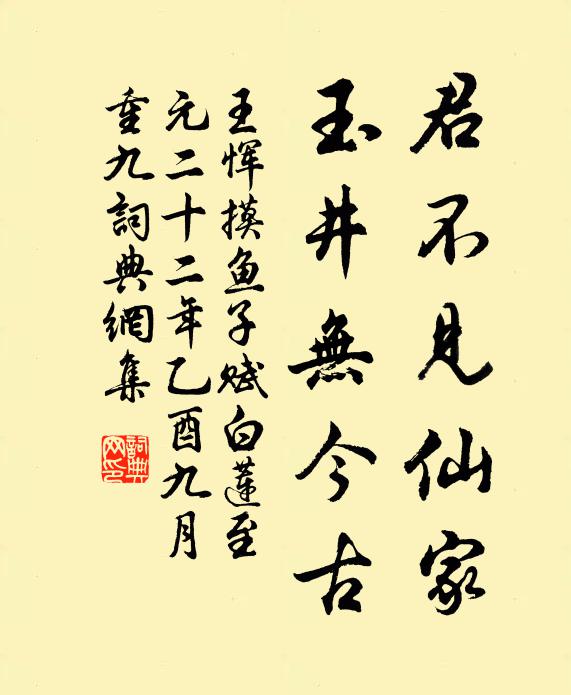 君不见仙家
玉井無今古
王恽摸鱼子赋白蓮至
元二十二年乙酉九月
重九詞典網集
詞典
网印